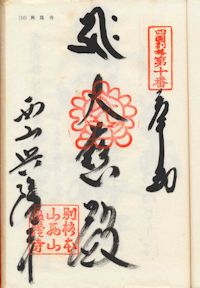 (10) 興隆寺
四国別格第十番
奉拝
大悲殿
西山興隆寺
別格本
山西山
興隆寺